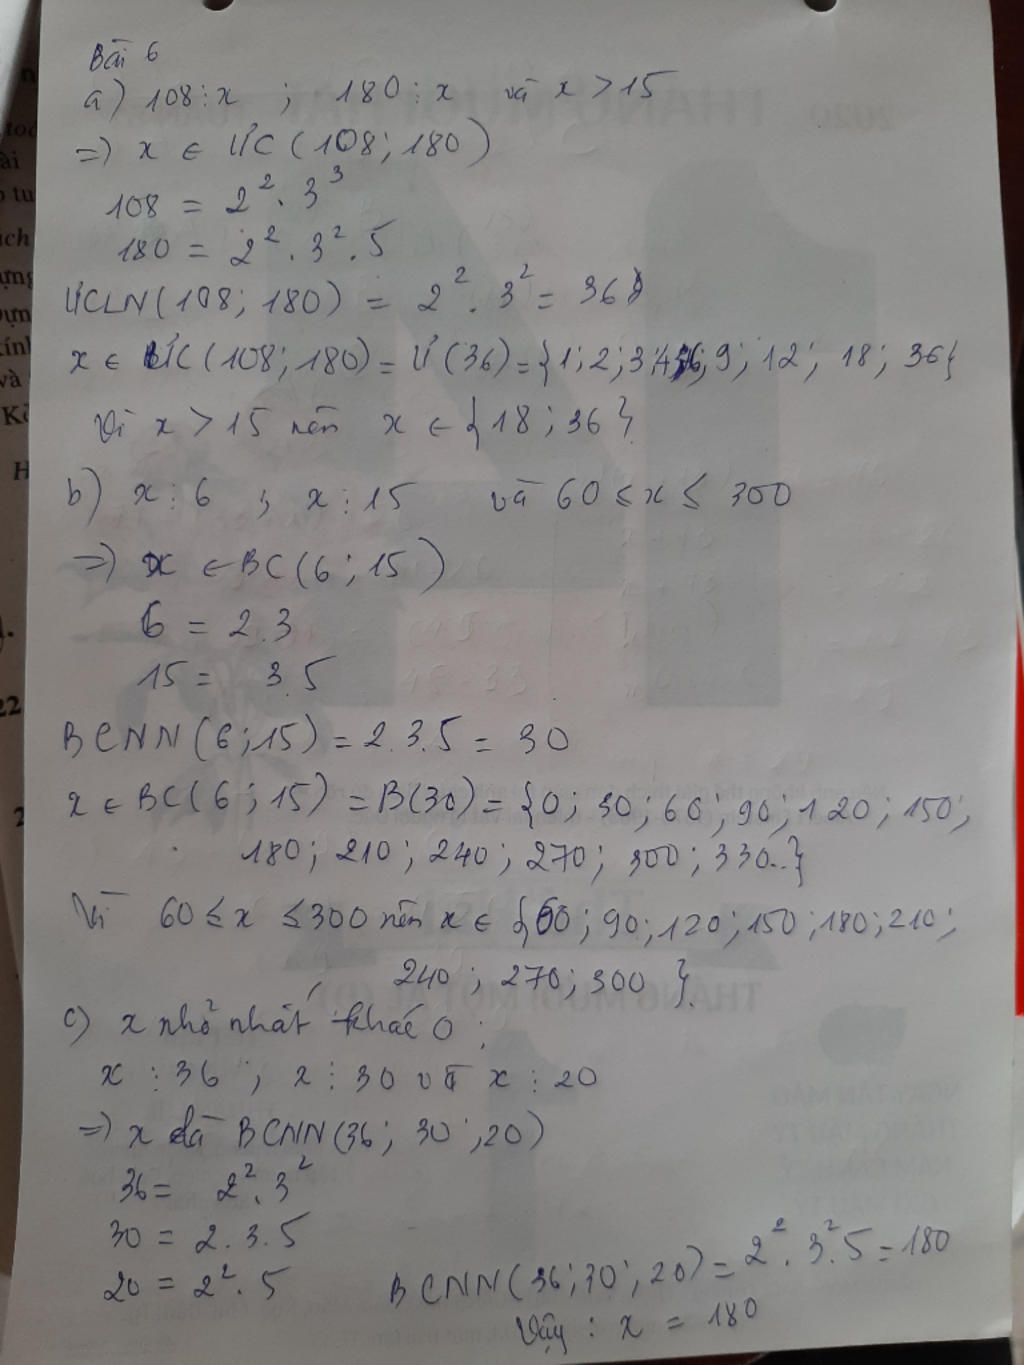 Bài 6
a) 108 ⋮ x ; 180 ⋮ x và x > 15
=> x ∈ ƯC (108; 180)
108 = 2² . 3³
180 = 2² . 3² . 5
ƯCLN (108; 180) = 2² . 3² = 36
x ∈ ƯC (108; 180) = Ư (36) = {1; 2; 3; 4; 6; 9; 12; 18; 36}
Vì x > 15 nên x ∈ {18; 36}
b) x ⋮ 6 ; x ⋮ 15 và 60 ≤ x ≤ 300
=> x ∈ BC (6; 15)
6 = 2.3
15 = 3.5
BCNN (6; 15) = 2.3.5 = 30
x ∈ BC (6; 15) = B(30) = {0; 30; 60; 90; 120; 150;
180; 210; 240; 270; 300; 330..}
Vì 60 ≤ x ≤ 300 nên x ∈ {60; 90; 120; 150; 180; 210;
240; 270; 300}.
c) x nhỏ nhất khác 0;
x ⋮ 36 ; x ⋮ 30 và x ⋮ 20
=> x là BCNN (36; 30; 20)
36 = 2² . 3²
30 = 2 . 3 . 5
20 = 2² . 5
BCNN (36; 30; 20) = 2² . 3² . 5 = 180
Vậy : x = 180